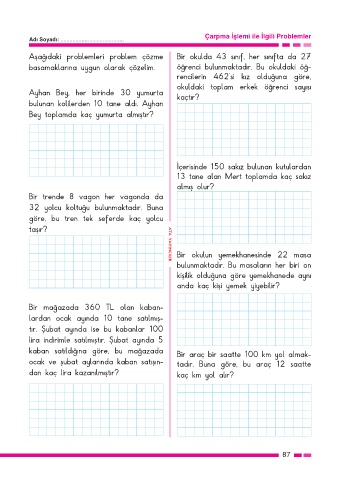 Adı Soyadı: ................................
Çarpma İşlemi ile İlgili Problemler
Aşağıdaki problemleri problem çözme
basamaklarına uygun olarak çözelim.
Ayhan Bey, her birinde 30 yumurta
bulunan kolilerden 10 tane aldı. Ayhan
Bey toplamda kaç yumurta almıştır?
Bir trende 8 vagon her vagonda da
32 yolcu koltuğu bulunmaktadır. Buna
göre, bu tren tek seferde kaç yolcu
taşır?
Bir mağazada 360 TL olan kaban-
lardan ocak ayında 10 tane satılmış-
tır. Şubat ayında ise bu kabanlar 100
lira indirimle satılmıştır. Şubat ayında 5
kaban satıldığına göre, bu mağazada
ocak ve şubat aylarında kaban satışın-
dan kaç lira kazanılmıştır?
Bir okulda 43 sınıf, her sınıfta da 27
öğrenci bulunmaktadır. Bu okuldaki öğ-
rencilerin 462'si kız olduğuna göre,
okuldaki toplam erkek öğrenci sayısı
kaçtır?
İçerisinde 150 sakız bulunan kutulardan
13 tane alan Mert toplamda kaç sakız
almış olur?
Bir okulun yemekhanesinde 22 masa
bulunmaktadır. Bu masaların her biri on
kişilik olduğuna göre yemekhanede aynı
anda kaç kişi yemek yiyebilir?
Bir araç bir saatte 100 km yol almak-
tadır. Buna göre, bu araç 12 saatte
kaç km yol alır?
87